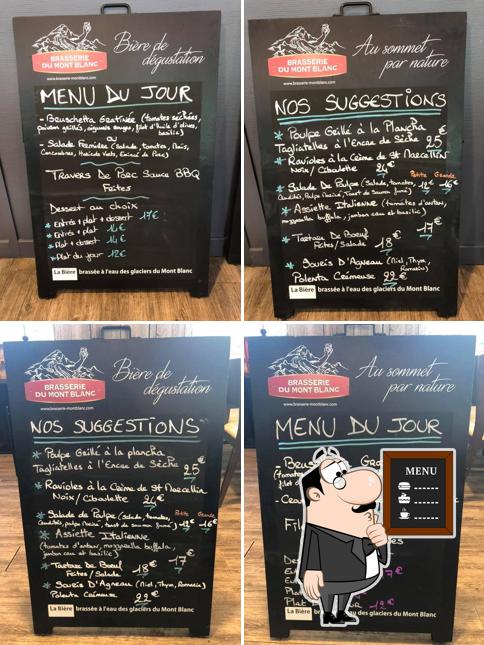 BRASSERIE
DU MONT BLANC
www.brasserie-montblanc.com
Bière de
dégustation
MENU DU JOUR
- Bruschetta Gratinée (tomates séchées,
poivrons grillés, oignons rouges, filet d'huile d'olives,
basilic)
ou
- Salade Fermière (Salade, tomates, Noix,
Concombres, Haricots Verts, Émincé de Porc)
Travers De Porc Sauce BBQ
Frites
Dessert au choix
Entrée + plat + dessert 17€
Entrée + plat 14€
Plat + dessert 14€
Plat du jour 12€
La Bière brassée à l'eau des glaciers du Mont Blanc
BRASSERIE
DU MONT BLANC
www.brasserie-montblanc.com
Au sommet
par nature
NOS SUGGESTIONS
* Poulpe Grillé à la Plancha €
Tagliatelles à l'Encre de Sèche 25
* Ravioles à la Crème de St Marcellin
Noix/Ciboulette 24€
Petite Grande
* Salade De Poulpe (Salade, tomates, 12€ 16€
* Assiette Italienne (tomates d'antan,
mozzarella buffala, jambon cru et basilic)
17€
* Tartare De Boeuf
Frites/Salade 18€
* Souris D'Agneau (Miel, Thym,
Romarin)
Polenta Crémeuse 22€
La Bière brassée à l'eau des glaciers du Mont Blanc
BRASSERIE
DU MONT BLANC
www.brasserie-montblanc.com
Bière de
dégustation
NOS SUGGESTIONS
* Poulpe Grillé à la plancha
Tagliatelles à l'Encre de Sèche 25€
* Ravioles à la Crème de St Marcellin
Noix/Ciboulette 24€
Petite Grande
* Salade de Poulpe (Salade, tomates,
12€ 16€
* Assiette Italienne
(tomates d'antan, mozzarella buffala,
jambon cru et basilic) 17€
* Tartare De Boeuf 18€
Frites/Salade
* Souris D'Agneau (Miel, Thym, Romarin)
Polenta Crémeuse 22€
La Bière brassée à l'eau des glaciers du Mont Blanc
BRASSERIE
DU MONT BLANC
www.brasserie-montblanc.com
Au sommet
par nature
MENU DU JOUR
MENU
La Bière brassée à l'eau des glaciers du Mont Blanc